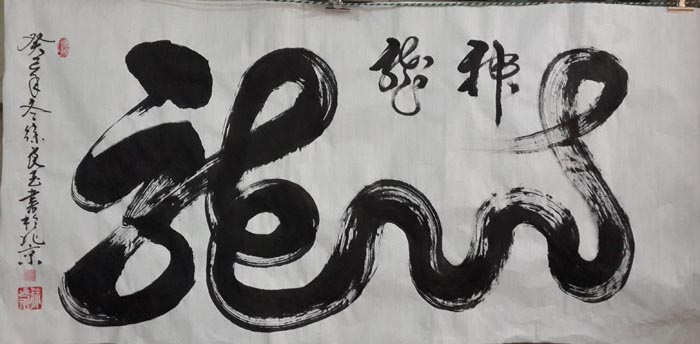 神龍
龍
癸巳年冬徐良玉書於北京